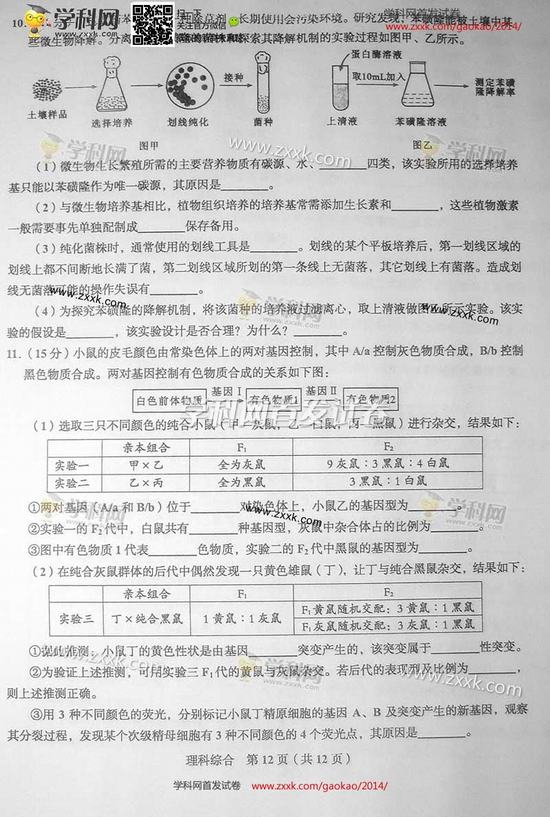 学科网首发试卷
www.zxxk.com/gaokao/2014/
10.
长期使用会污染环境。研究发现，苯磺隆能被土壤中某
些微生物降解。分离
探索其降解机制的实验过程如图甲、乙所示。
土壤样品
选择培养
划线纯化
接种
菌种
图甲
蛋白酶溶液
取10mL加入
上清液
苯磺隆溶液
测定苯磺
隆降解率
图乙
（1）微生物生长繁殖所需的主要营养物质有碳源、水、________四类，该实验所用的选择培养
基只能以苯磺隆作为唯一碳源，其原因是________。
（2）与微生物培养基相比，植物组织培养的培养基常需添加生长素和________，这些植物激素
一般需要事先单独配制成________保存备用。
（3）纯化菌株时，通常使用的划线工具是________。划线的某个平板培养后，第一划线区域的
划线上都不间断地长满了菌，第二划线区域所划的第一条线上无菌落，其它划线上有菌落。造成划
线无菌落可能的操作失误有________。
（4）为探究苯磺隆的降解机制，将该菌种的培养液过滤离心，取上清液做图乙所示实验。该实
验的假设是________，该实验设计是否合理？为什么？________。
11.（15分）小鼠的皮毛颜色由常染色体上的两对基因控制，其中 A/a 控制灰色物质合成，B/b 控制
黑色物质合成。两对基因控制有色物质合成的关系如下图：
白色前体物质 基因Ⅰ 有色物质1 基因Ⅱ 有色物质2
（1）选取三只不同颜色的纯合小鼠（甲—灰鼠，乙—白鼠，丙—黑鼠）进行杂交，结果如下：
亲本组合 F₁ F₂
实验一 甲×乙 全为灰鼠 9 灰鼠：3 黑鼠：4 白鼠
实验二 乙×丙 全为黑鼠 3 黑鼠：1 白鼠
①两对基因（A/a 和 B/b）位于________对染色体上，小鼠乙的基因型为________。
②实验一的 F₂ 代中，白鼠共有________种基因型，灰鼠中杂合体占的比例为________。
③图中有色物质 1 代表________色物质，实验二的 F₂ 代中黑鼠的基因型为________。
（2）在纯合灰鼠群体的后代中偶然发现一只黄色雄鼠（丁），让丁与纯合黑鼠杂交，结果如下：
亲本组合 F₁ F₂
实验三 丁×纯合黑鼠 1 黄鼠：1 灰鼠 F₁黄鼠随机交配：3 黄鼠：1 黑鼠
F₁灰鼠随机交配：3 灰鼠：1 黑鼠
①据此推测：小鼠丁的黄色性状是由基因________突变产生的，该突变属于________性突变。
②为验证上述推测，可用实验三 F₁ 代的黄鼠与灰鼠杂交。若后代的表现型及比例为________，
则上述推测正确。
③用 3 种不同颜色的荧光，分别标记小鼠丁精原细胞的基因 A、B 及突变产生的新基因，观察
其分裂过程，发现某个次级精母细胞有 3 种不同颜色的 4 个荧光点，其原因是________。
理科综合 第 12 页（共 12 页）
学科网首发试卷 www.zxxk.com/gaokao/2014/